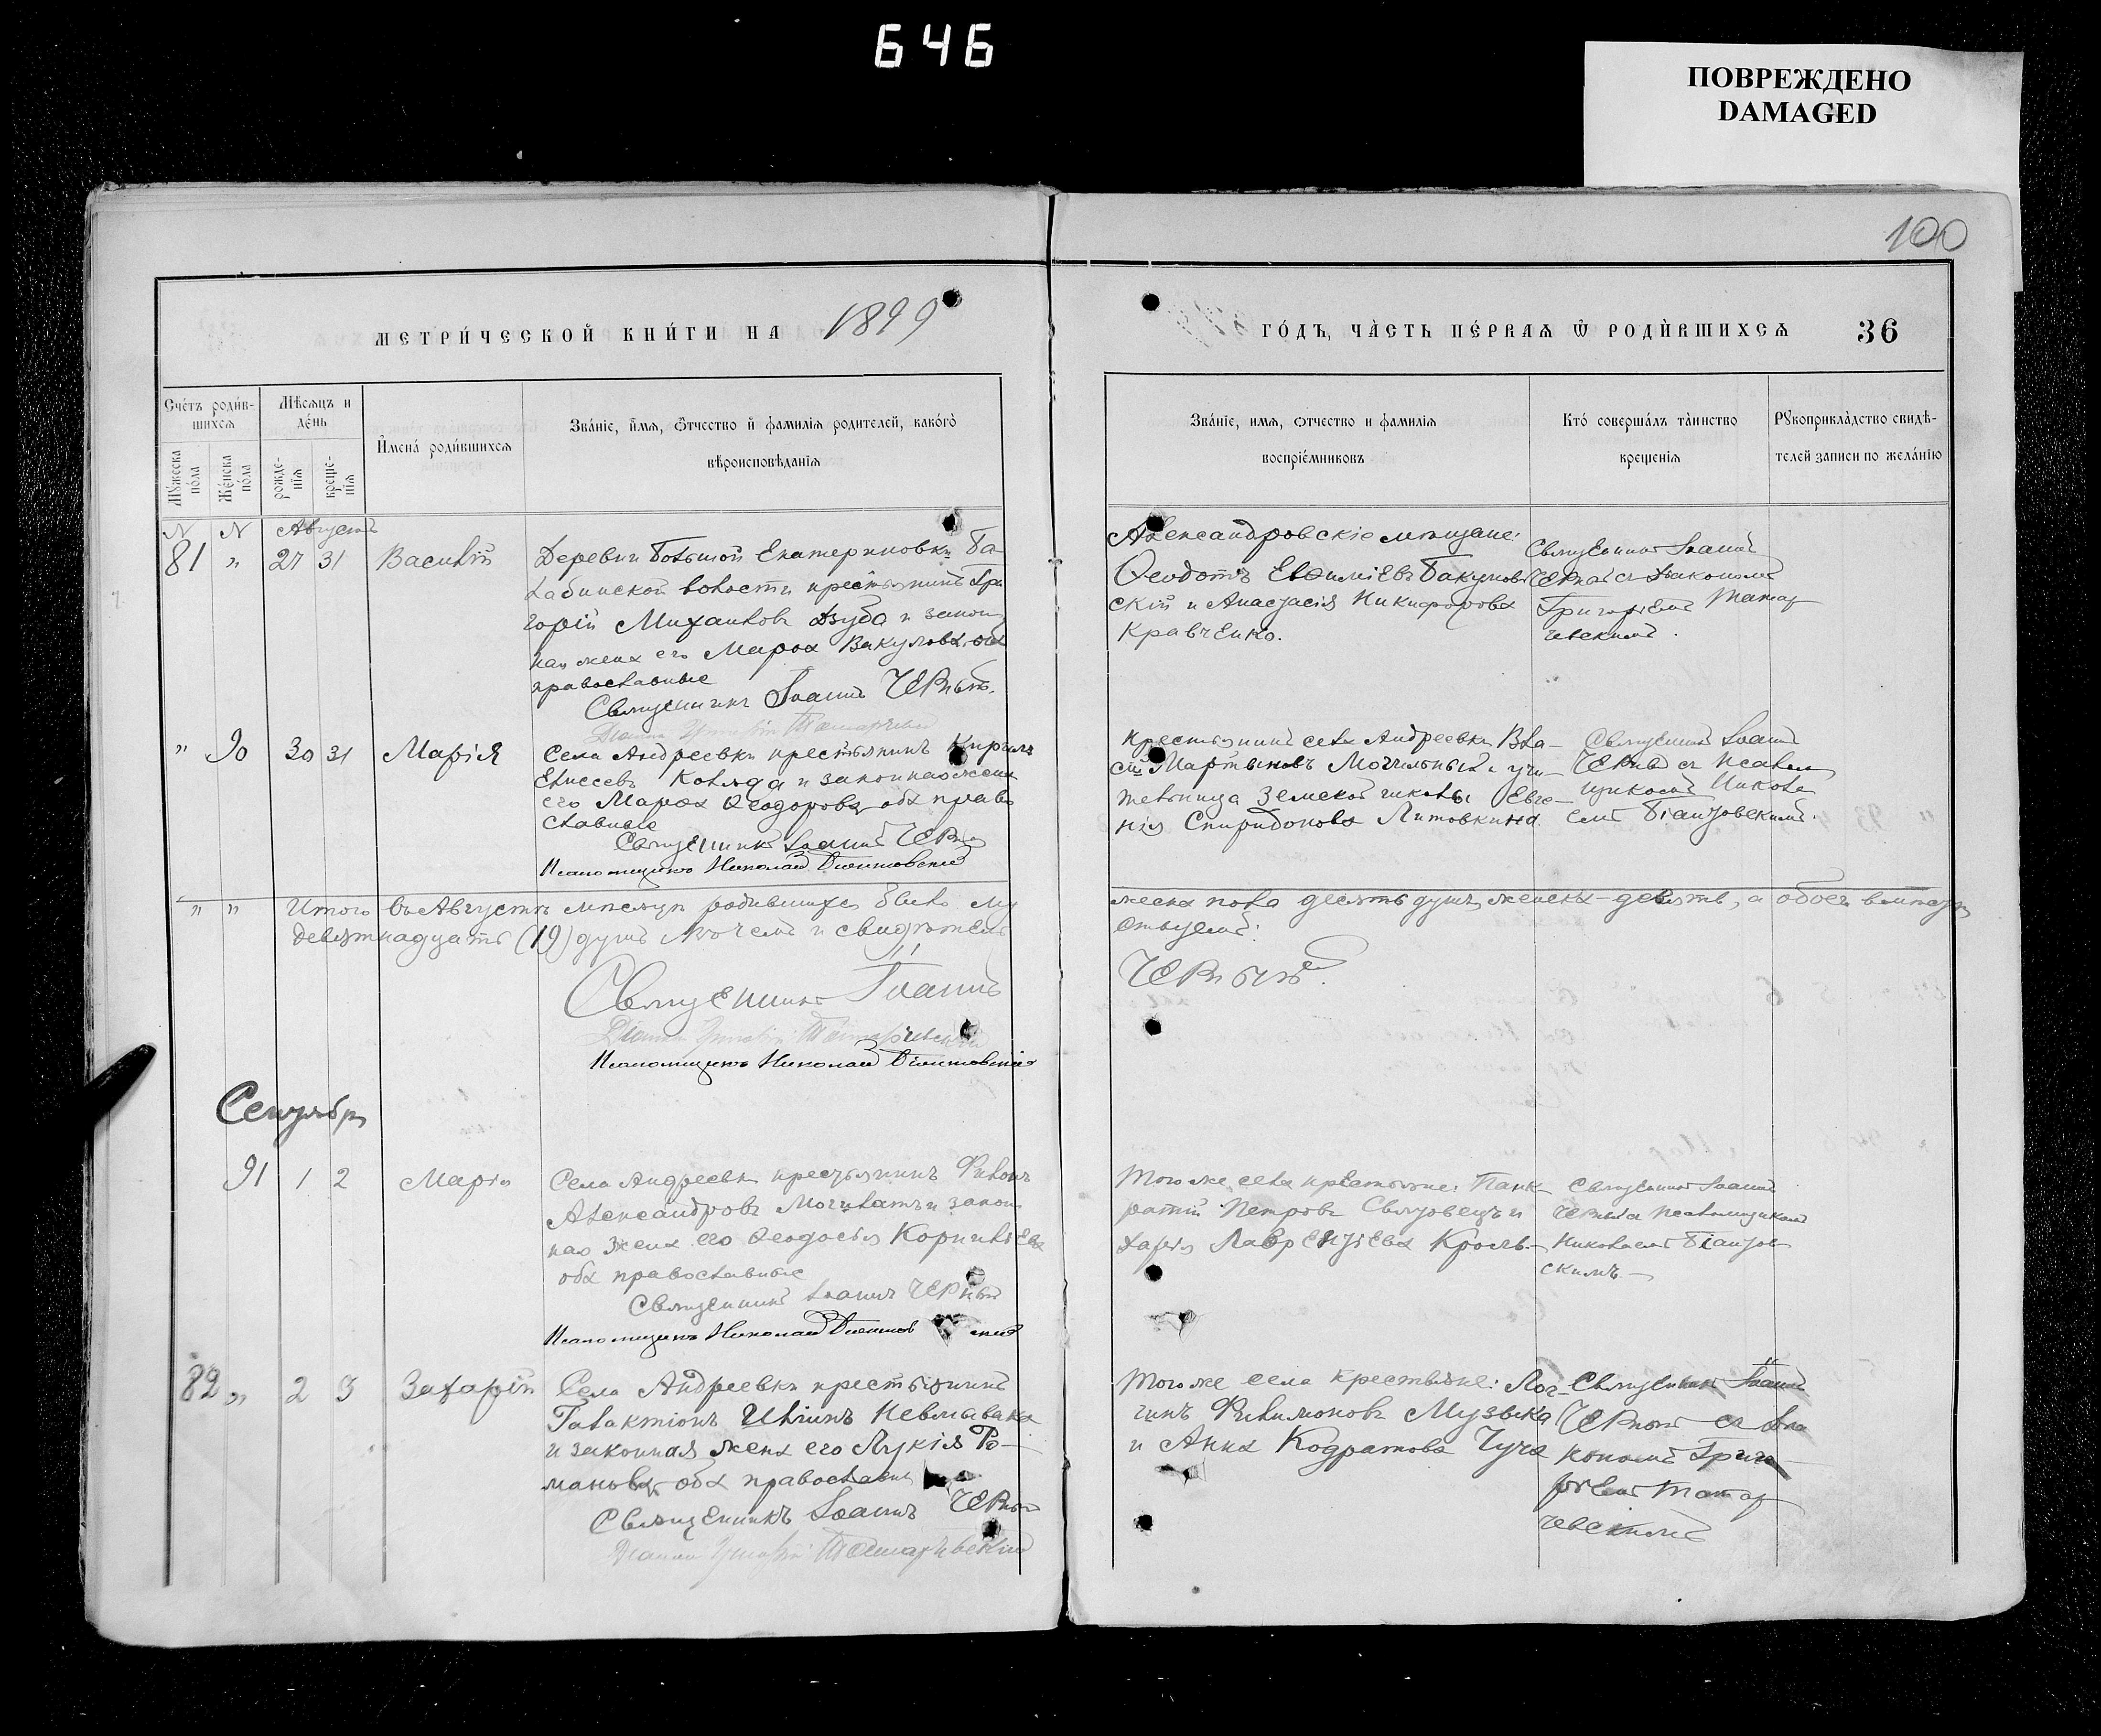 646
ПОВРЕЖДЕНО
DAMAGED
100
МЕТРИ́ЧЕСКОЙ КНИ́ГИ НА 1899
ГО́ДЪ, ЧА́СТЬ ПЕ́РВАѦ Ѿ РОДИ́ВШИХСѦ 36
Сче́тъ роди́в-
шихсѧ
Мѣ́сѧцъ и
де́нь
Му́жеска по́ла
Же́нска по́ла
рожде-
нїѧ
креще-
нїѧ
И҆мена̀ роди́вшихсѧ
Зва́нїе, и҆́мѧ, ѻ҆́тчество и҆ фамилїѧ родителей, како́гѡ
вѣроисповѣ́данїѧ
Зва́нїе, имѧ, ѻтчество и фамилїѧ
воспрїе́мниковъ
Кто́ соверша́лъ та́инство
крещенїѧ
Рꙋкоприкла́дство свидѣ́-
телей записи по жела́нїю
N N Августъ
81 " 27 31 Василій
Деревни Большой Екатериновки Ба-
лабинской волости крестьянинъ Гри
горій Михаиловъ Дзуба и закон
ная жена его Мароа Вакулова, оба
православные
Священникъ Іоаннъ Черный
Александровскіе мѣщане:
Ѳеодотъ Евѳиміевъ Бакумов
скій и Анастасія Никифорова
Кравченко.
Священникъ Іоаннъ
Черный съ діакономъ
Григоріемъ Татар
чевскимъ.
" 90 30 31 Марія
Села Андреевки крестьянинъ Кириллъ
Елисеевъ Коляда и законная жена
его Мароа Ѳеодорова, оба право
славные
Священникъ Іоаннъ Черный
Псаломщикъ Николай
Крестьянинъ села Андреевки Вла-
сій Мартыновъ Могильный и учи-
тельница Земской школы Евге-
нія Спиридонова Литовкина
Священникъ Іоаннъ
Черный съ Псалом
щикомъ Никола
емъ
" " Итого въ Августѣ мѣсяцѣ родившихся было му
жеска пола десять душъ, женска - девять, а обоего вмѣстѣ
девятнадцать (19) душъ въ чемъ и свидѣтель
ствуемъ:
Священникъ Іоаннъ
Черный
Псаломщикъ Николай
Сентябрь
91 1 2 Марія
Села Андреевки крестьянинъ Филонъ
Александровъ Могилатъ и закон
ная жена его Ѳеодосія Корнилева
оба православные
Священникъ Іоаннъ Черный
Псаломщикъ Николай
Того же села крестьяне: Панк-
ратій Петровъ Святовецъ и
Дарія Лаврентіева Кроль.
Священникъ Іоаннъ
Черный съ псаломщикомъ
Николаемъ
скимъ
82 " 2 3 Захарій
Села Андреевки крестьянинъ
Галактіонъ Ильинъ Невмывака
и законная жена его Лукія Ро-
манова, оба православны
Священникъ Іоаннъ Черный
Того же села крестьяне: Лог-
гинъ Филимоновъ Музыка
и Анна Кодратова Чуча
Священникъ Іоаннъ
Черный съ діа
кономъ Григо
ріемъ Татар
чевскимъ